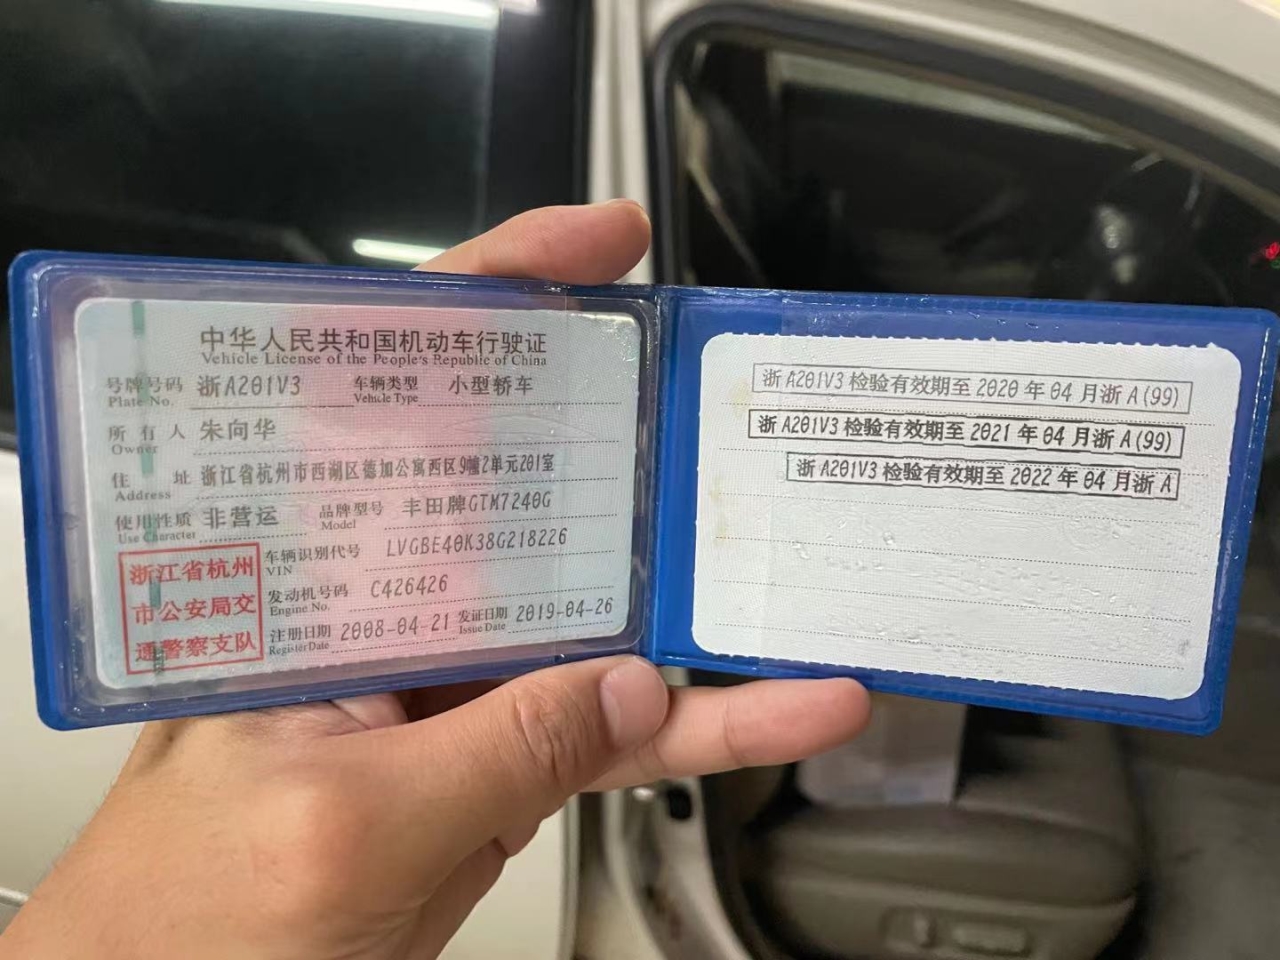 中华人民共和国机动车行驶证
Vehicle License of the People's Republic of China
号牌号码 浙A201V3 车辆类型 小型轿车
Plate No. Vehicle Type
所有人 朱向华
Owner
住址 浙江省杭州市西湖区德加公寓西区9幢2单元201室
Address
使用性质 非营运 品牌型号 丰田牌GTM7240G
Use Character Model
车辆识别代号 LVGBE40K38G218226
VIN
发动机号码 C426426
Engine No.
注册日期 2008-04-21 发证日期 2019-04-26
Register Date Issue Date
浙江省杭州
市公安局交
通警察支队
浙A201V3检验有效期至2020年04月浙A(99)
浙A201V3检验有效期至2021年04月浙A(99)
浙A201V3检验有效期至2022年04月浙A